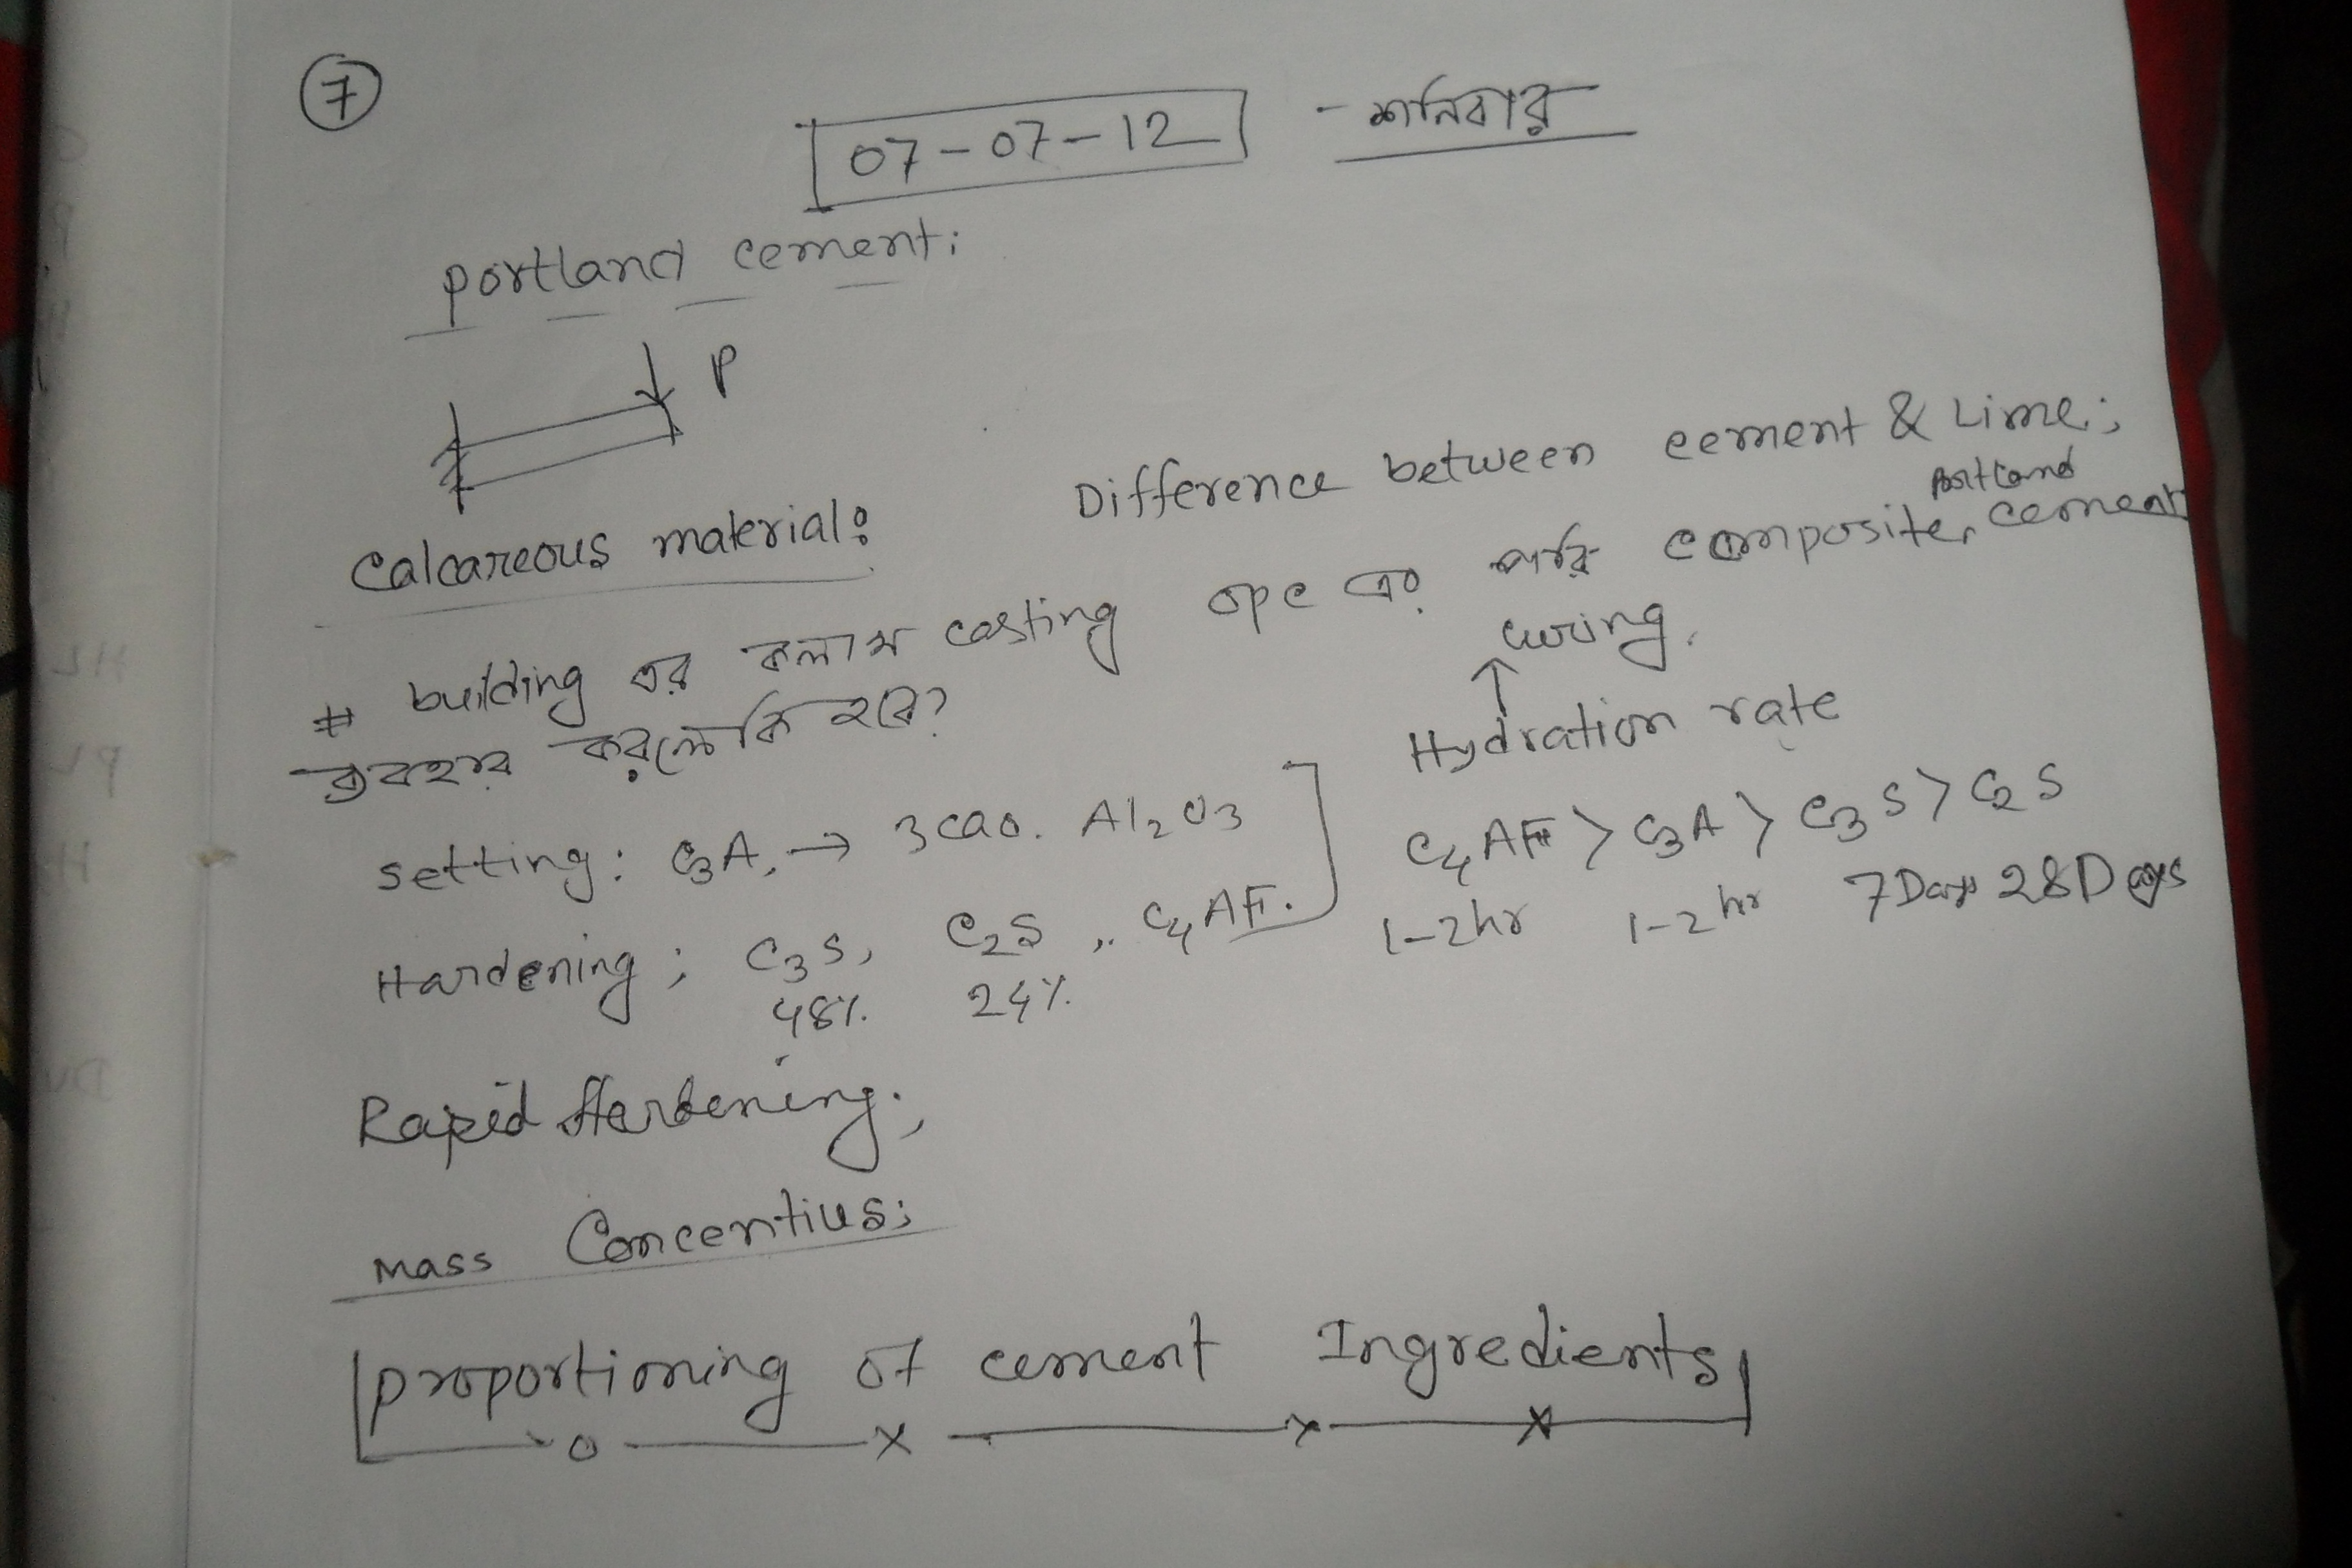 7
07-07-12 - শনিবার
portland cement:
P
Calcareous material:
Difference between cement & Lime:
# building এর কলাম casting ope এর পরি composite portland cement
ব্যবহার করলে কি হবে?
curing.
↑
Hydration rate
setting: C3A, → 3CaO. Al2O3
Hardening: C3S, C2S, C4AF.
48% 24%
C4AF > C3A > C3S > C2S
1-2hr 1-2hr 7Days 28Days
Rapid Hardening:
Mass
proportioning of cement Ingredients